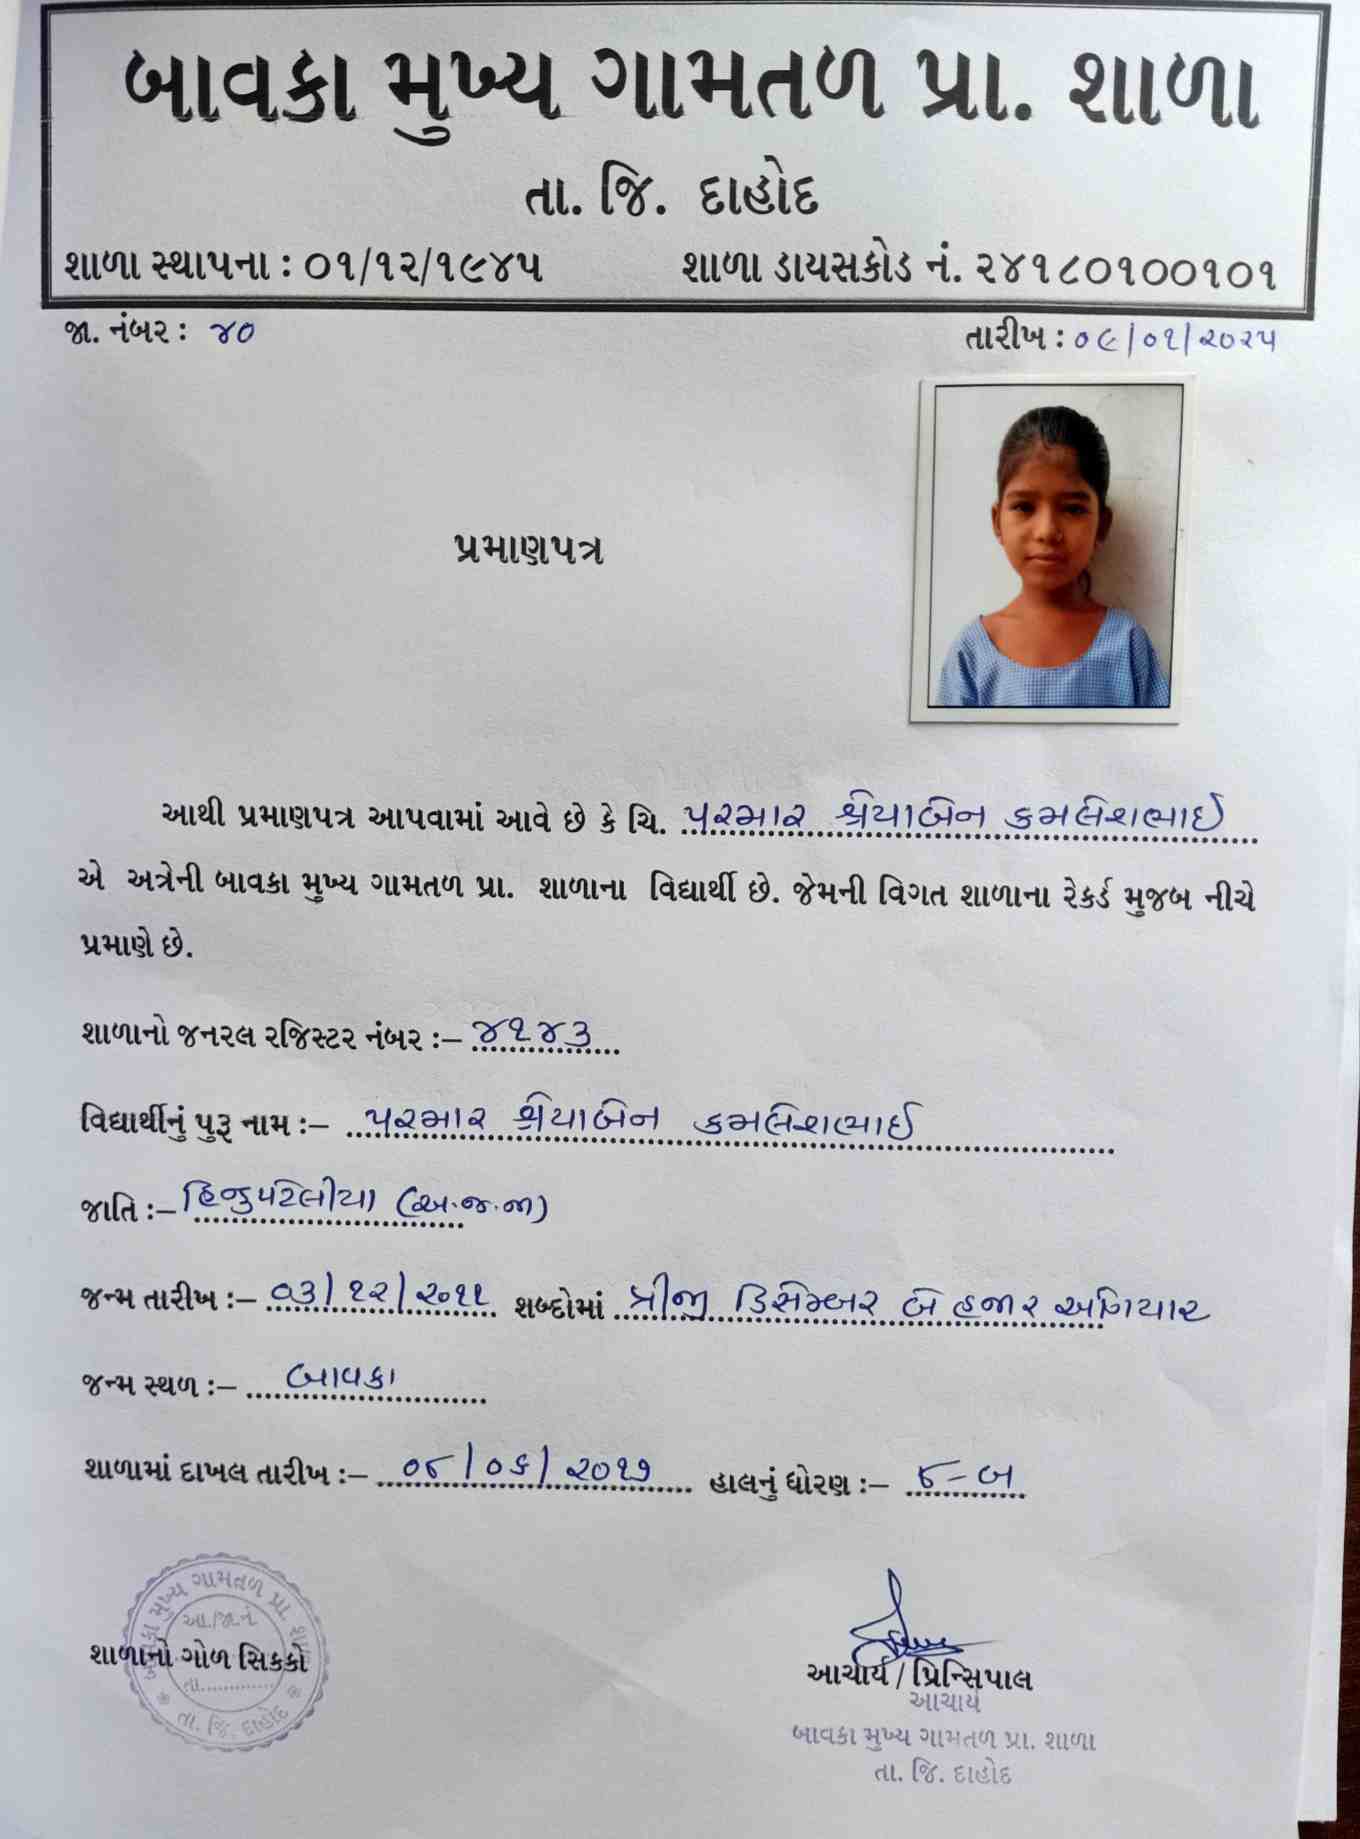 બાવકા મુખ્ય ગામતળ પ્રા. શાળા
તા. જિ. દાહોદ
શાળા સ્થાપના : ૦૧/૧૨/૧૯૪૫ શાળા ડાયસકોડ નં. ૨૪૧૮૦૧૦૦૧૦૧
જા. નંબર : ૪૦ તારીખ : ૦૯/૦૧/૨૦૨૫
પ્રમાણપત્ર
આથી પ્રમાણપત્ર આપવામાં આવે છે કે ચિ. પરમાર શ્રેયાબેન કમલેશભાઈ
એ અત્રેની બાવકા મુખ્ય ગામતળ પ્રા. શાળાના વિદ્યાર્થી છે. જેમની વિગત શાળાના રેકર્ડ મુજબ નીચે
પ્રમાણે છે.
શાળાનો જનરલ રજિસ્ટર નંબર :– ૪૧૪૩
વિદ્યાર્થીનું પુરૂ નામ :– પરમાર શ્રેયાબેન કમલેશભાઈ
જાતિ :– હિન્દુપટેલીયા (અ.જ.જા)
જન્મ તારીખ :– ૦૩/૧૨/૨૦૧૧ શબ્દોમાં ત્રીજી ડિસેમ્બર બે હજાર અગિયાર
જન્મ સ્થળ :– બાવકા
શાળામાં દાખલ તારીખ :– ૦૮/૦૬/૨૦૧૭ હાલનું ધોરણ :– ૮-બ
બાવકા મુખ્ય ગામતળ પ્રા. શાળા
આ./જા.નં.
શાળાનો ગોળ સિકકો
તા.............
તા. જિ. દાહોદ
આચાર્ય / પ્રિન્સિપાલ
આચાર્ય
બાવકા મુખ્ય ગામતળ પ્રા. શાળા
તા. જિ. દાહોદ